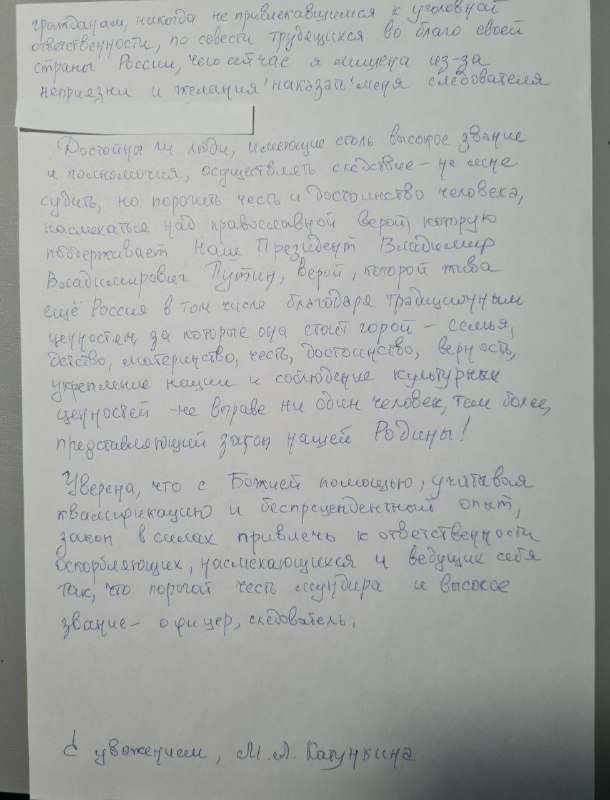 гражданам, никогда не привлекавшимся к уголовной
ответственности, по совести трудящихся во благо своей
страны России, чего сейчас я лишена из-за
неприязни и желания "наказать" меня следователя
Достойны ли люди, имеющие столь высокое звание
и полномочия, осуществлять следствие - не мне
судить, но порочить честь и достоинство человека,
насмехаться над православной верой, которую
поддерживает наш Президент Владимир
Владимирович Путин, верой, которой жива
ещё Россия в том числе благодаря традиционным
ценностям, за которые она стоит горой - семья,
детство, материнство, честь, достоинство, верность,
укрепление нации и соблюдение культурных
ценностей - не вправе ни один человек, тем более,
представляющий закон нашей Родины!
Уверена, что с Божией помощью, учитывая
квалификацию и беспрецендентный опыт,
закон в силах привлечь к ответственности
оскорбляющих, насмехающихся и ведущих себя
так, что порочат честь мундира и высокое
звание - офицер, следователь.
С уважением, М.А.